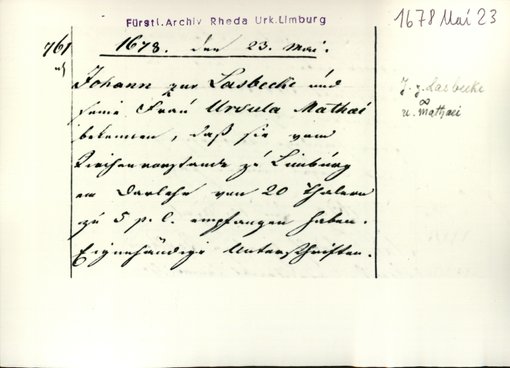 Fürstl. Archiv Rheda Urk. Limburg
1678 Mai 23
761
1678. den 23. Mai.
Johann zur Lasbecke und
seine Frau Ursula Mathaei
bekennen, daß sie vom
Kirchenvorstande zu Limburg
ein Darlehn von 20 Thalern
zu 5 p. C. empfangen haben.
Eigenhändige Unterschriften.
J. z. Lasbecke
∞
u. Mathaei